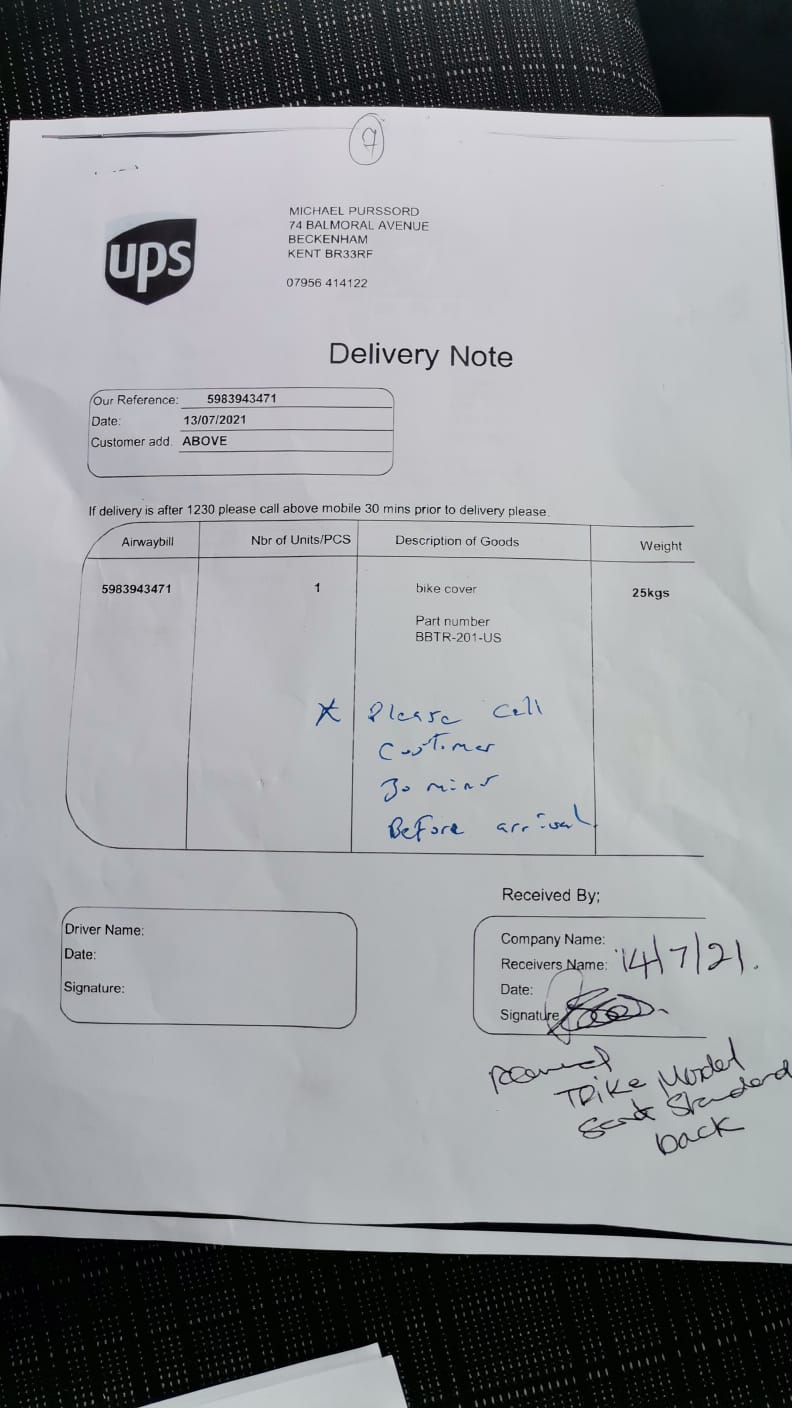 9
ups
MICHAEL PURSSORD
74 BALMORAL AVENUE
BECKENHAM
KENT BR33RF
07956 414122
Delivery Note
Our Reference: 5983943471
Date: 13/07/2021
Customer add. ABOVE
If delivery is after 1230 please call above mobile 30 mins prior to delivery please.
Airwaybill Nbr of Units/PCS Description of Goods Weight
5983943471 1 bike cover 25kgs
Part number
BBTR-201-US
* Please call
Customer
30 mins
Before arrival
Driver Name:
Date:
Signature:
Received By;
Company Name:
Receivers Name: 14/7/21.
Date:
Signature
Received
TRike Model
Sent Standard
back